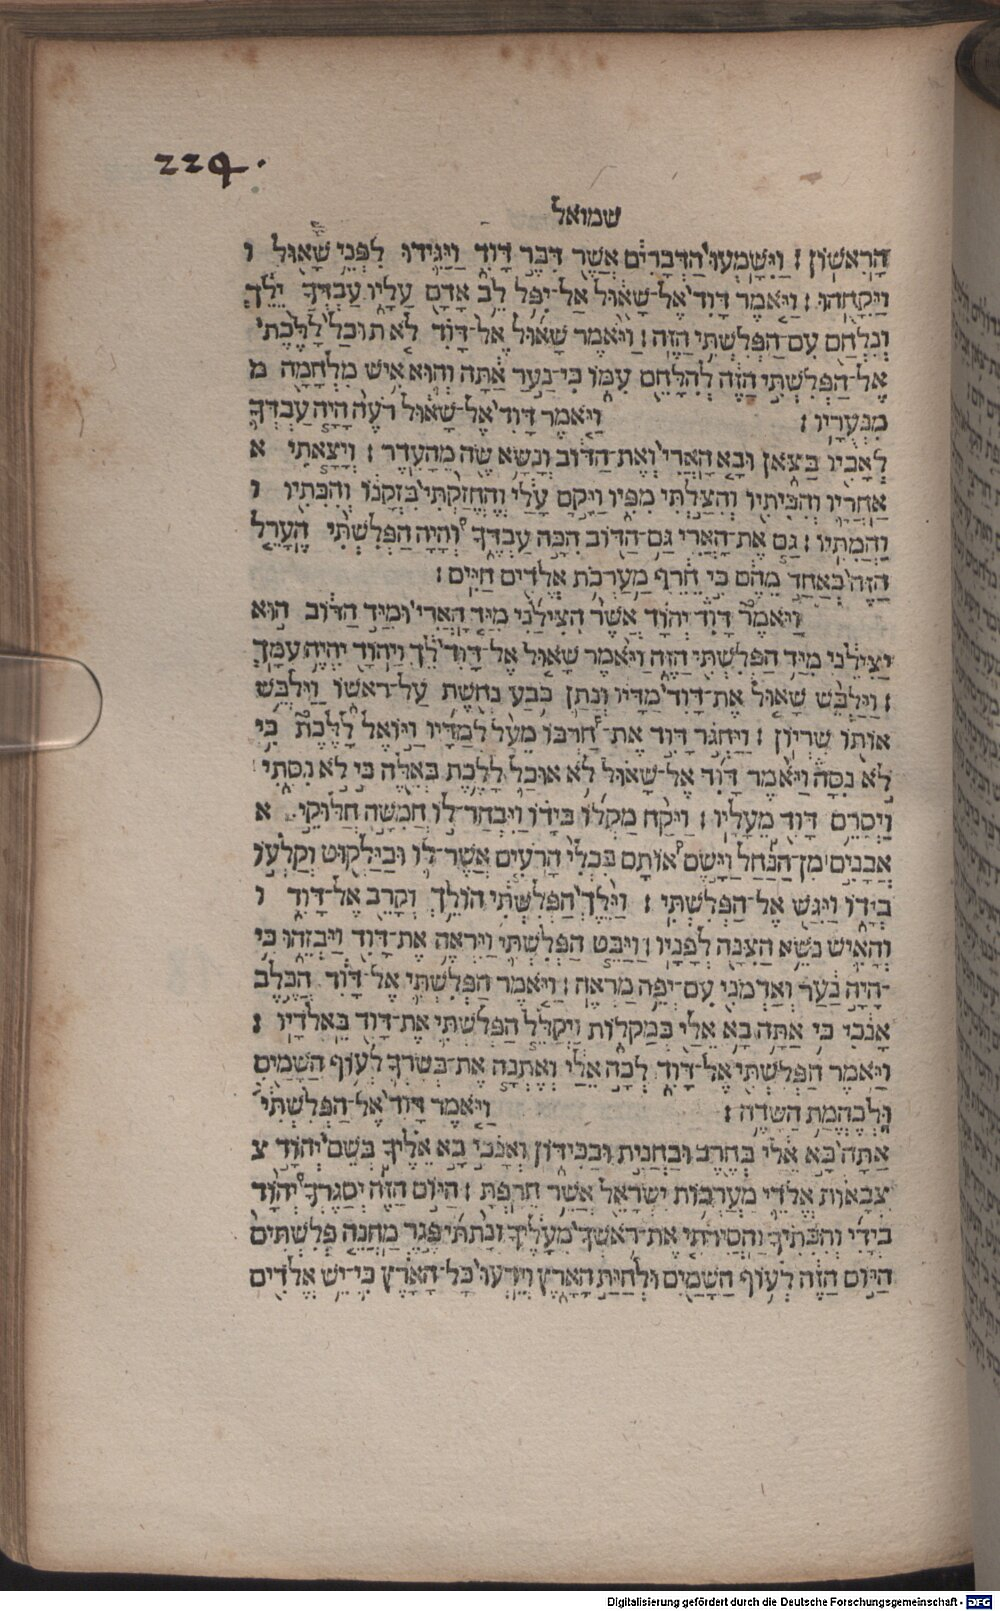 224.
שמואל
הָרִאשׁוֹן׃ וַיִּשָּׁמְעוּ הַדְּבָרִים אֲשֶׁר דִּבֶּר דָּוִד וַיַּגִּידוּ לִפְנֵי שָׁאוּל ו
וַיִּקָּחֵהוּ׃ וַיֹּאמֶר דָּוִד אֶל־שָׁאוּל אַל־יִפֹּל לֵב אָדָם עָלָיו עַבְדְּךָ יֵלֵךְ
וְנִלְחַם עִם־הַפְּלִשְׁתִּי הַזֶּה׃ וַיֹּאמֶר שָׁאוּל אֶל־דָּוִד לֹא תוּכַל לָלֶכֶת
אֶל־הַפְּלִשְׁתִּי הַזֶּה לְהִלָּחֵם עִמּוֹ כִּי־נַעַר אַתָּה וְהוּא אִישׁ מִלְחָמָה מ
מִנְּעֻרָיו׃ וַיֹּאמֶר דָּוִד אֶל־שָׁאוּל רֹעֶה הָיָה עַבְדְּךָ
לְאָבִיו בַּצֹּאן וּבָא הָאֲרִי וְאֶת־הַדּוֹב וְנָשָׂא שֶׂה מֵהָעֵדֶר׃ וְיָצָאתִי א
אַחֲרָיו וְהִכִּיתִיו וְהִצַּלְתִּי מִפִּיו וַיָּקָם עָלַי וְהֶחֱזַקְתִּי בִּזְקָנוֹ וְהִכִּתִיו ו
וַהֲמִתִּיו׃ גַּם אֶת־הָאֲרִי גַּם־הַדּוֹב הִכָּה עַבְדֶּךָ וְהָיָה הַפְּלִשְׁתִּי הֶעָרֵל
הַזֶּה כְּאַחַד מֵהֶם כִּי חֵרֵף מַעַרְכֹת אֱלֹדִים חַיִּים׃
וַיֹּאמֶר דָּוִד יְהֹוָד אֲשֶׁר הִצִּילַנִי מִיַּד הָאֲרִי וּמִיַּד הַדּוֹב הוּא
יַצִּילֵנִי מִיַּד הַפְּלִשְׁתִּי הַזֶּה וַיֹּאמֶר שָׁאוּל אֶל־דָּוִד לֵךְ וַיהֹוָד יִהְיֶה עִמָּךְ
׃ וַיַּלְבֵּשׁ שָׁאוּל אֶת־דָּוִד מַדָּיו וְנָתַן כְּבַע נְחֹשֶׁת עַל־רֹאשׁוֹ וַיַּלְבֵּשׁ
אוֹתוֹ שִׁרְיוֹן׃ וַיַּחְגֹּר דָּוִד אֶת־חַרְבּוֹ מֵעַל לְמַדָּיו וַיּוֹאֶל לָלֶכֶת כִּי
לֹא נִסָּה וַיֹּאמֶר דָּוִד אֶל־שָׁאוּל לֹא אוּכַל לָלֶכֶת בְּאֵלֶּה כִּי לֹא נִסִּתִי
וַיְסִרֵם דָּוִד מֵעָלָיו׃ וַיִּקַּח מַקְלוֹ בְּיָדוֹ וַיִּבְחַר־לוֹ חֲמִשָּׁה חַלּוּקֵי א
אֲבָנִים מִן־הַנַּחַל וַיָּשֶׂם אוֹתָם בִּכְלִי הָרֹעִים אֲשֶׁר־לוֹ וּבַיַּלְקוּט וְקַלְעוֹ
בְיָדוֹ וַיִּגַּשׁ אֶל־הַפְּלִשְׁתִּי׃ וַיֵּלֶךְ הַפְּלִשְׁתִּי הוֹלֵךְ וְקָרֵב אֶל־דָּוִד ו
וְהָאִישׁ נֹשֵׂא הַצִּנָּה לְפָנָיו׃ וַיַּבֵּט הַפְּלִשְׁתִּי וַיִּרְאֶה אֶת־דָּוִד וַיִּבְזֵהוּ כִּי
־הָיָה נַעַר וְאַדְמֹנִי עִם־יְפֵה מַרְאֶה׃ וַיֹּאמֶר הַפְּלִשְׁתִּי אֶל־דָּוִד הֲכֶלֶב
אָנֹכִי כִּי אַתָּה בָא אֵלַי בַּמַּקְלוֹת וַיְקַלֵּל הַפְּלִשְׁתִּי אֶת־דָּוִד בֵּאלֹדָיו׃
וַיֹּאמֶר הַפְּלִשְׁתִּי אֶל־דָּוִד לְכָה אֵלַי וְאֶתְּנָה אֶת־בְּשָׂרְךָ לְעוֹף הַשָּׁמַיִם
וּלְבֶהֱמַת הַשָּׂדֶה׃ וַיֹּאמֶר דָּוִד אֶל־הַפְּלִשְׁתִּי
אַתָּה בָּא אֵלַי בְּחֶרֶב וּבַחֲנִית וּבְכִידוֹן וְאָנֹכִי בָא אֵלֶיךָ בְּשֵׁם יְהֹוָד צ
צְבָאוֹת אֱלֹדֵי מַעַרְכוֹת יִשְׂרָאֵל אֲשֶׁר חֵרַפְתָּ׃ הַיּוֹם הַזֶּה יְסַגֶּרְךָ יְהֹוָד
בְּיָדִי וְהִכִּתִיךָ וַהֲסִירֹתִי אֶת־רֹאשְׁךָ מֵעָלֶיךָ וְנָתַתִּי פֶּגֶר מַחֲנֵה פְלִשְׁתִּים
הַיּוֹם הַזֶּה לְעוֹף הַשָּׁמַיִם וּלְחַיַּת הָאָרֶץ וְיֵדְעוּ כָּל־הָאָרֶץ כִּי יֵשׁ אֱלֹדִים
Digitalisierung gefördert durch die Deutsche Forschungsgemeinschaft - DFG